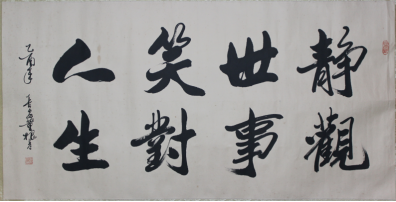 静觀
世事
笑對
人生
乙酉年